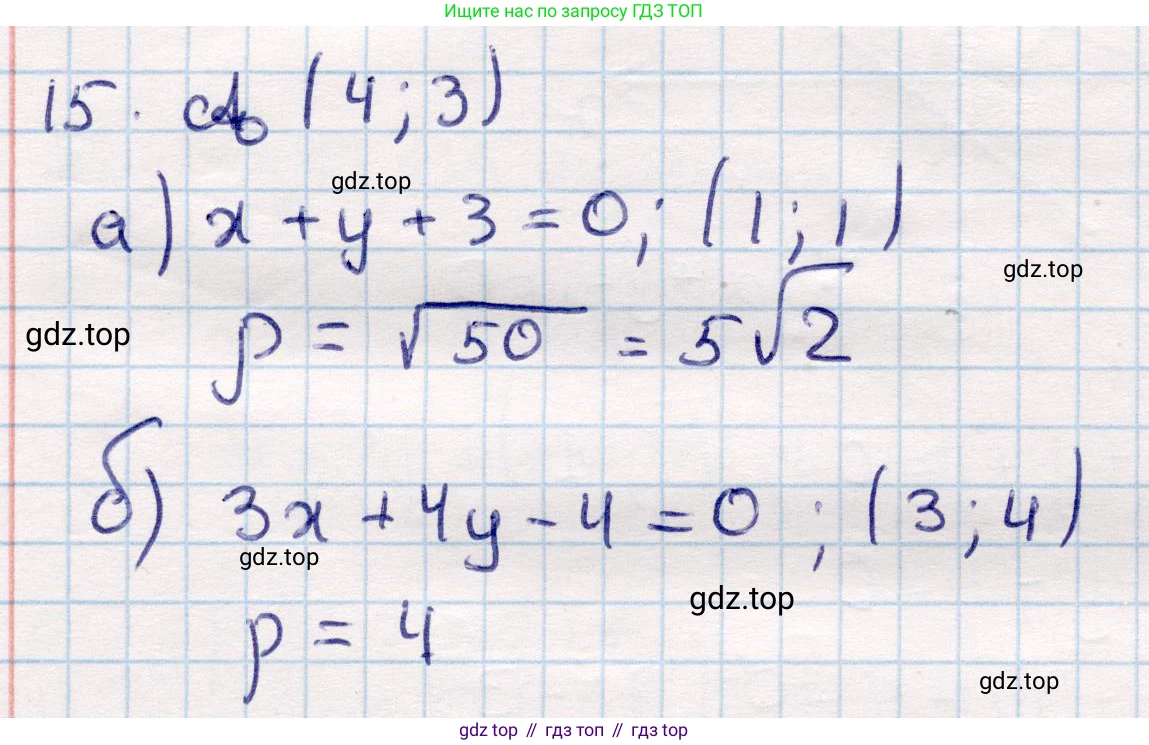 Ищите нас по запросу ГДЗ ТОП
15. (4; 3)
gdz.top
а) x + y + 3 = 0; (1; 1)
gdz.top
gdz.top
p = √50 = 5√2
б) 3x + 4y - 4 = 0; (3; 4)
gdz.top
gdz.top
p = 4
gdz.top
gdz top // гдз топ // гдз top